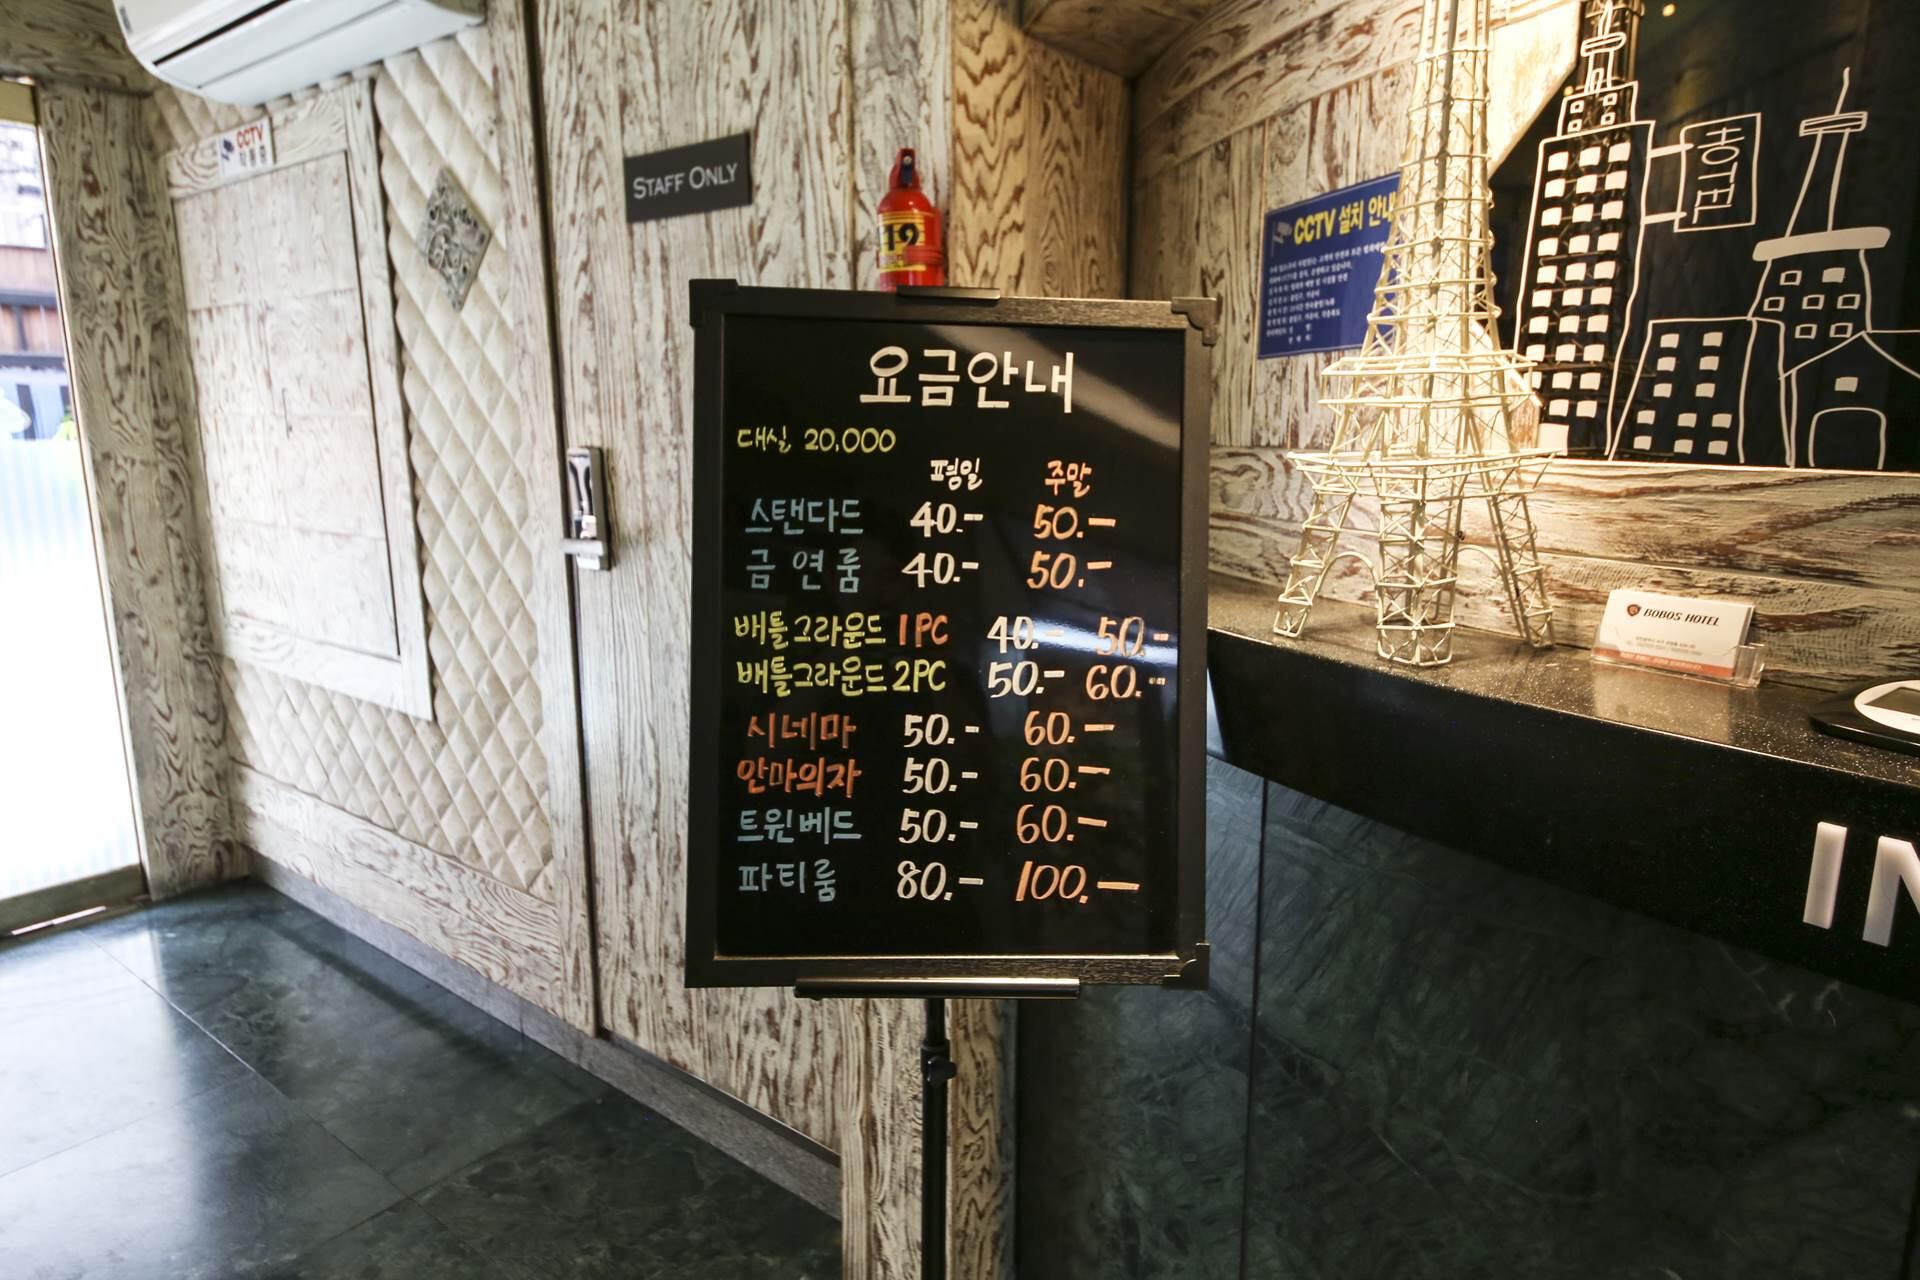 CCTV
작동중
STAFF ONLY
119
CCTV 설치 안내
HOTEL
요금안내
대실 20,000
평일 주말
스탠다드 40.- 50.-
금연룸 40.- 50.-
배틀그라운드 1PC 40.- 50.-
배틀그라운드 2PC 50.- 60.-
시네마 50.- 60.-
안마의자 50.- 60.-
트윈베드 50.- 60.-
파티룸 80.- 100.-
BOBOS HOTEL
IN